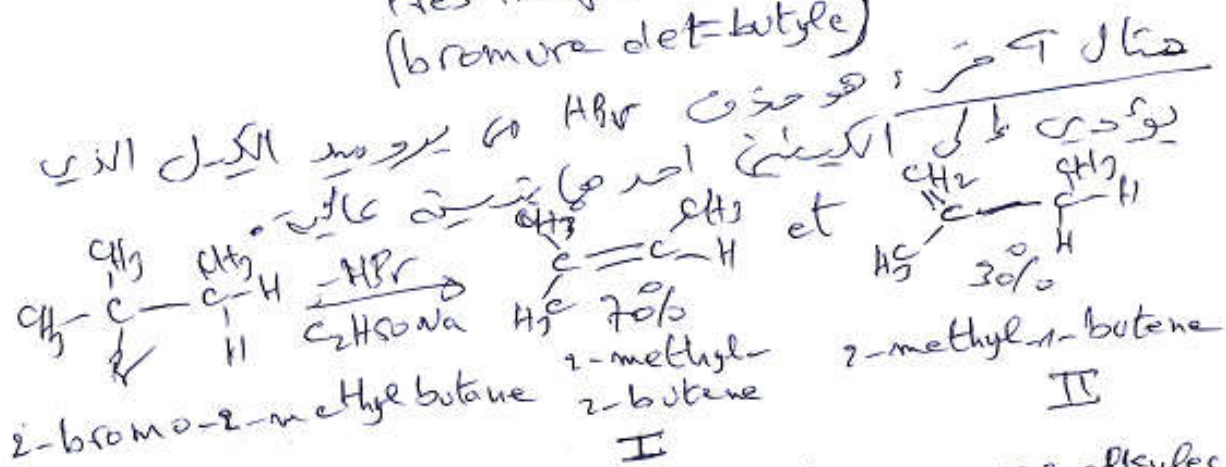 (bromure de t-butyle)
مثال آخر : هو حذف HBr من بروميد الكيل الذي
يؤدي الى الكينين احدهما بنسبة عالية.
CH3 CH3 CH3 CH3 et CH2 CH3
CH3-C-C-H -HBr C=C-H C-C-H
Br H C2H5ONa H3C 70% H3C H 30%
2-bromo-2-methylbutane 2-methyl-2-butene 2-methyl-1-butene
I II